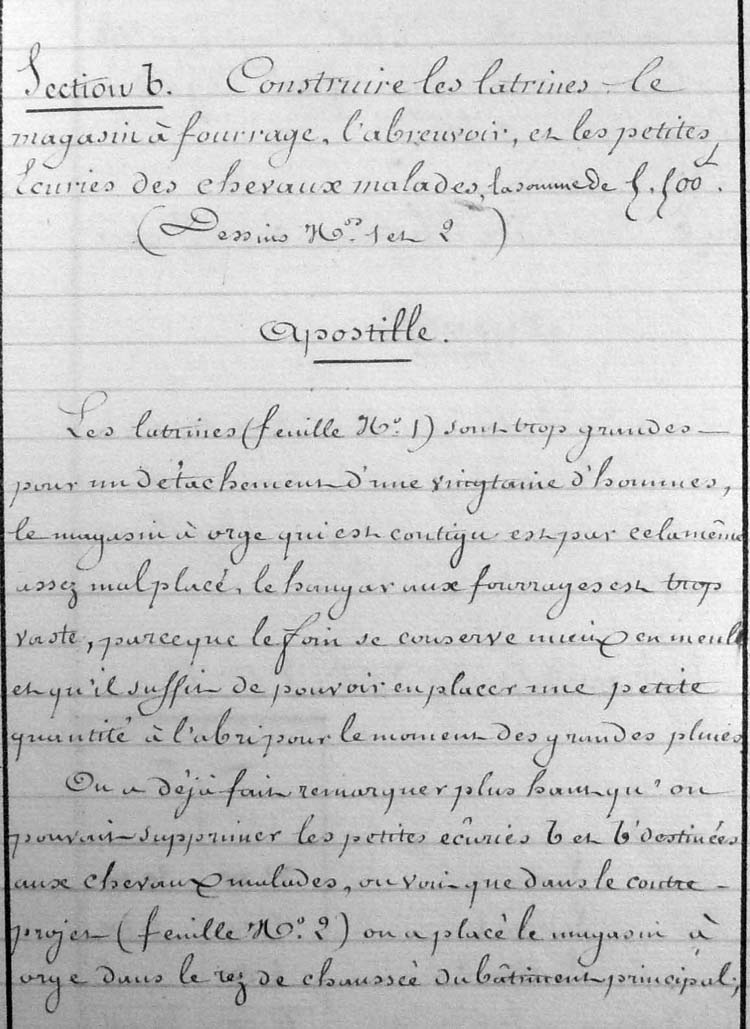 Section b. Construire les latrines - le
magasin à fourrage, l'abreuvoir, et les petites
écuries des chevaux malades, la somme de 5.500f.
(Dessins Nos. 1 et 2)
Apostille.
Les latrines (feuille No. 1) sont trop grandes -
pour un détachement d'une vingtaine d'hommes,
le magasin à orge qui est contigu est par cela même
assez mal placé, le hangar aux fourrages est trop
vaste, parceque le foin se conserve mieux en meule
et qu'il suffit de pouvoir en placer une petite
quantité à l'abri pour le moment des grandes pluies
On a déjà fait remarquer plus haut qu'on
pouvait supprimer les petites écûries b et b' destinées
aux chevaux malades, on voit que dans le contre -
projet (feuille No. 2) on a placé le magasin à
orge dans le rez de chaussée du bâtiment principal,